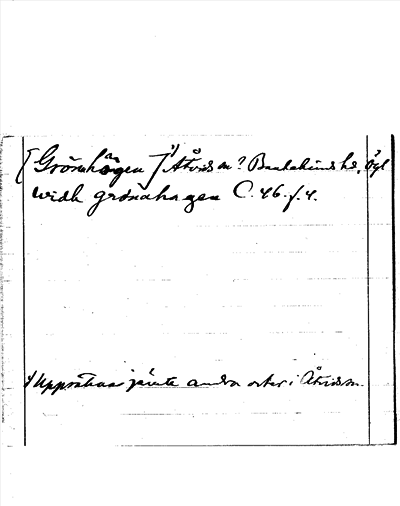 [Grönhagen]¹⁾ Åtvids sn? Bankekinds hd, Ögl
widh grönahagen C. 46. f. 4.
¹⁾ Uppräknas jämte andra orter i Åtvids sn.